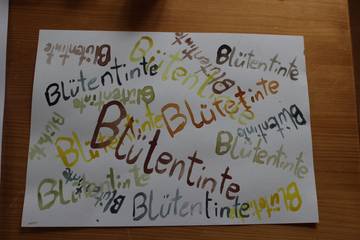 Blütentinte
Blütentinte
Blütentinte
Blütentinte
Blütentinte
Blütentinte
Blütentinte
Blütentinte
Blütentinte
Blütentinte
Blütentinte
Blütentinte
Blütentinte
Blütentinte
Blütentinte
Blütentinte